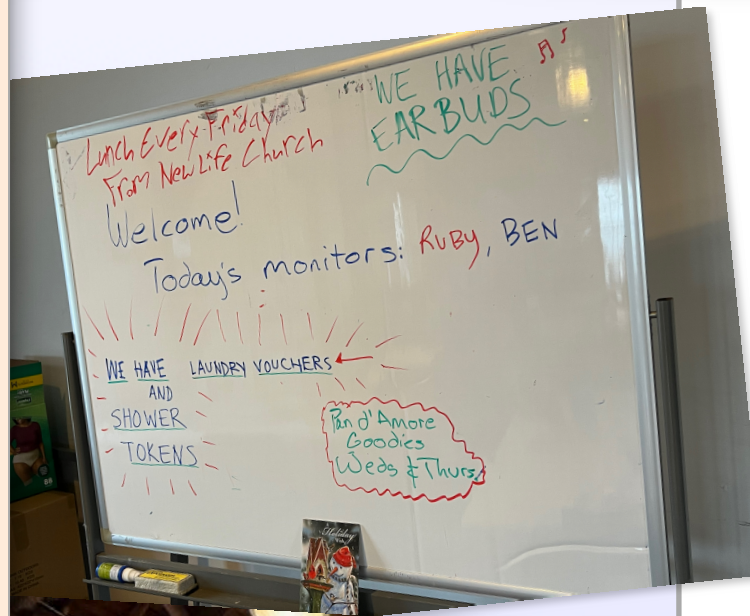 WE HAVE
EARBUDS
Lunch Every Friday
From New Life Church
Welcome!
Today's monitors: RUBY, BEN
WE HAVE LAUNDRY VOUCHERS
AND
SHOWER
TOKENS
Pan d'Amore
Goodies
Weds & Thurs
Holiday